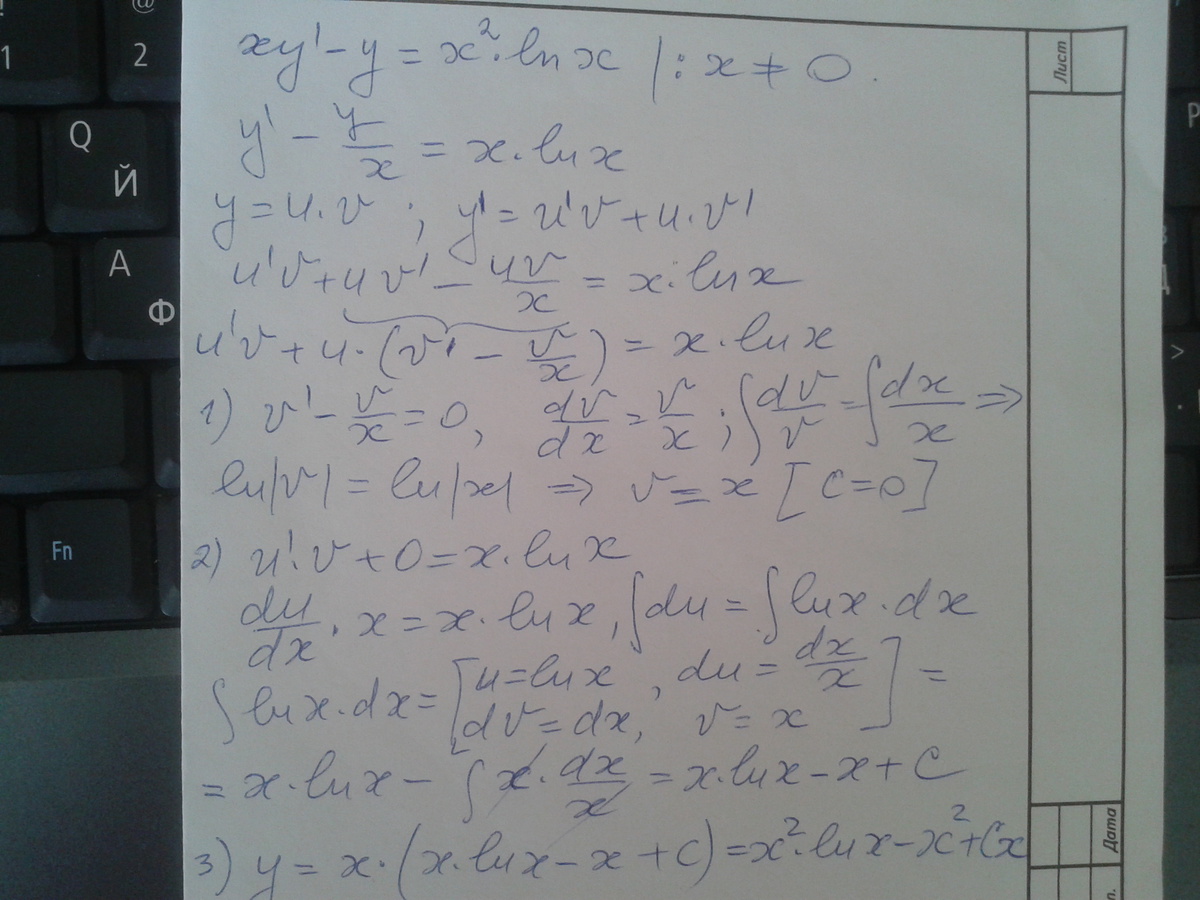 xy' - y = x²·ln x | : x ≠ 0.
y' - y/x = x·ln x
y = u·v ; y' = u'v + u·v'
u'v + uv' - uv/x = x·ln x
u'v + u·(v' - v/x) = x·ln x
1) v' - v/x = 0, dv/dx = v/x ; ∫dv/v = ∫dx/x ⇒
ln|v| = ln|x| ⇒ v = x [C=0]
2) u'·v + 0 = x·ln x
du/dx · x = x·ln x, ∫du = ∫ln x·dx
∫ln x·dx = [u = ln x, du = dx/x
dv = dx, v = x] =
= x·ln x - ∫x·dx/x = x·ln x - x + C
3) y = x·(x·ln x - x + C) = x²·ln x - x² + Cx
Лист
Дата
1
@
2
Q
Й
A
Ф
Fn
P
Д
>